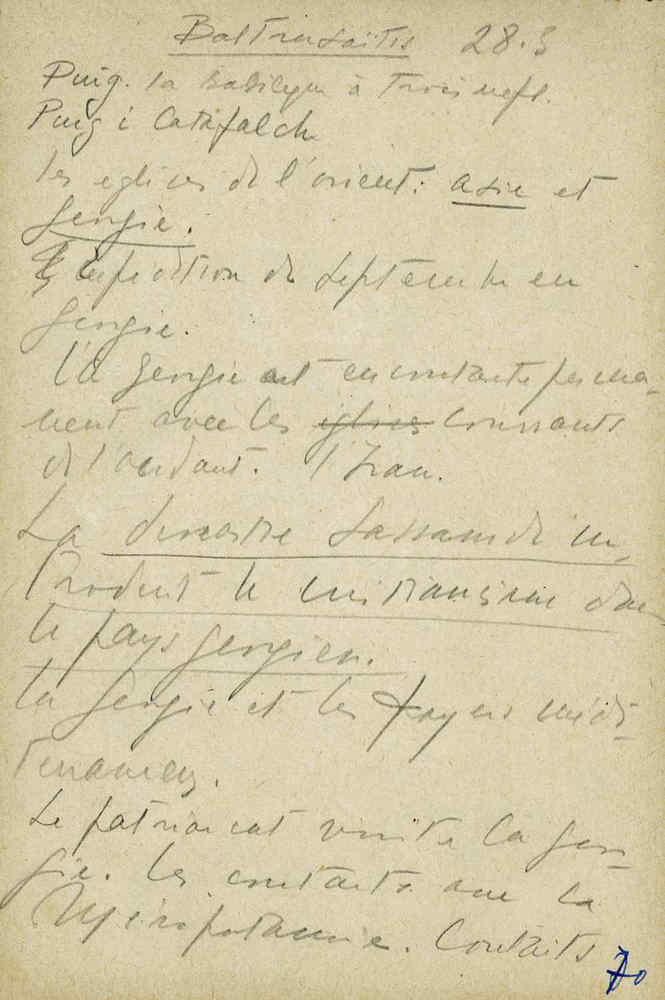 Baltrusaïtis 28.3
Puig. la basilique à trois nefs.
Puig i Catafalch
les eglises de l'orient: asie et
Georgie.
expedition de septembre en
Georgie.
La Georgie est en contacte perma-
nent avec les eglises courrants
de l'occidant. l'Iran.
La dinastie Sassanide in-
troduit le cristianisme dans
le pays georgien.
La Georgie et les foyers médi-
terraneens.
Le patriarcat visite la Geor-
gie. les contacts avec la
Mesopotamie. Contacts
70